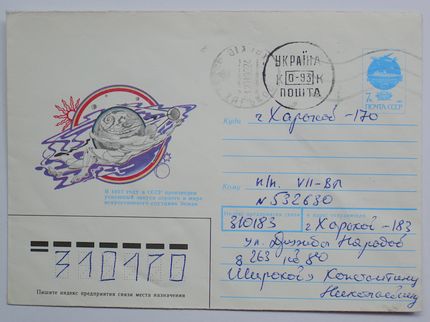 УКРАЇНА
К 0-93 К
ПОШТА
7к
ПОЧТА СССР
Куда г. Харьков -170
В 1957 году в СССР произведен
успешный запуск первого в мире
искусственного спутника Земли
Кому п/п. VII-ВЛ
№ 532630
Индекс предприятия связи и адрес отправителя
310183 г. Харьков -183
ул. Дружбы Народов
263 кв 80
Широкой Константину
Николаевичу
310170
Пишите индекс предприятия связи места назначения